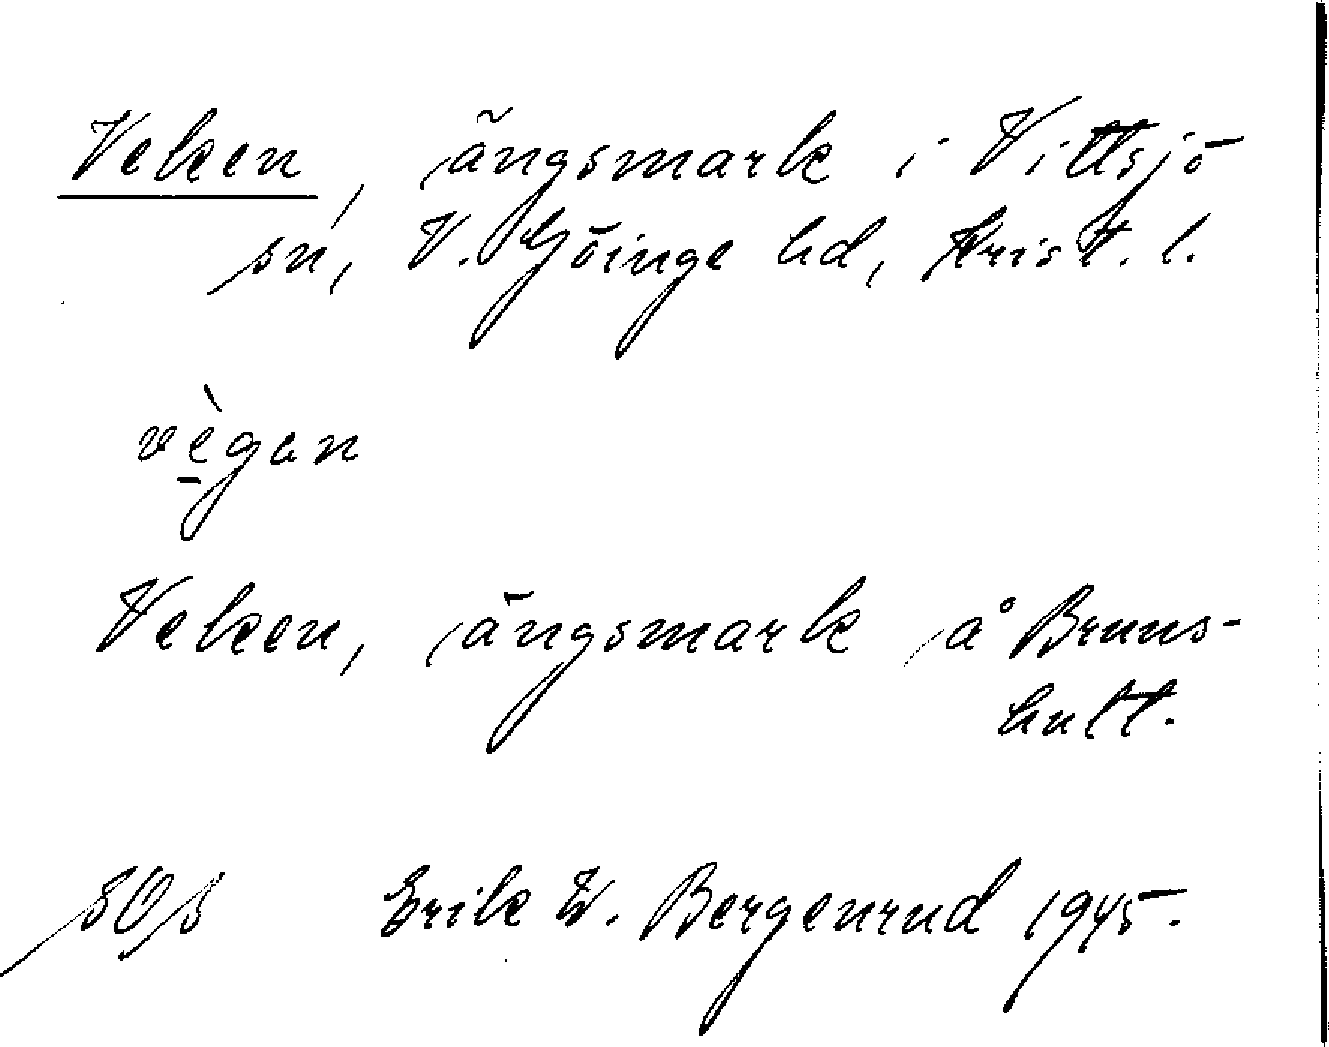 Veken, ängsmark i Vittsjö
sn, V. Göinge hd, Krist. l.
vègan
Veken, ängsmark på Bruns-
hult.
Erik W. Bergenrud 1945.